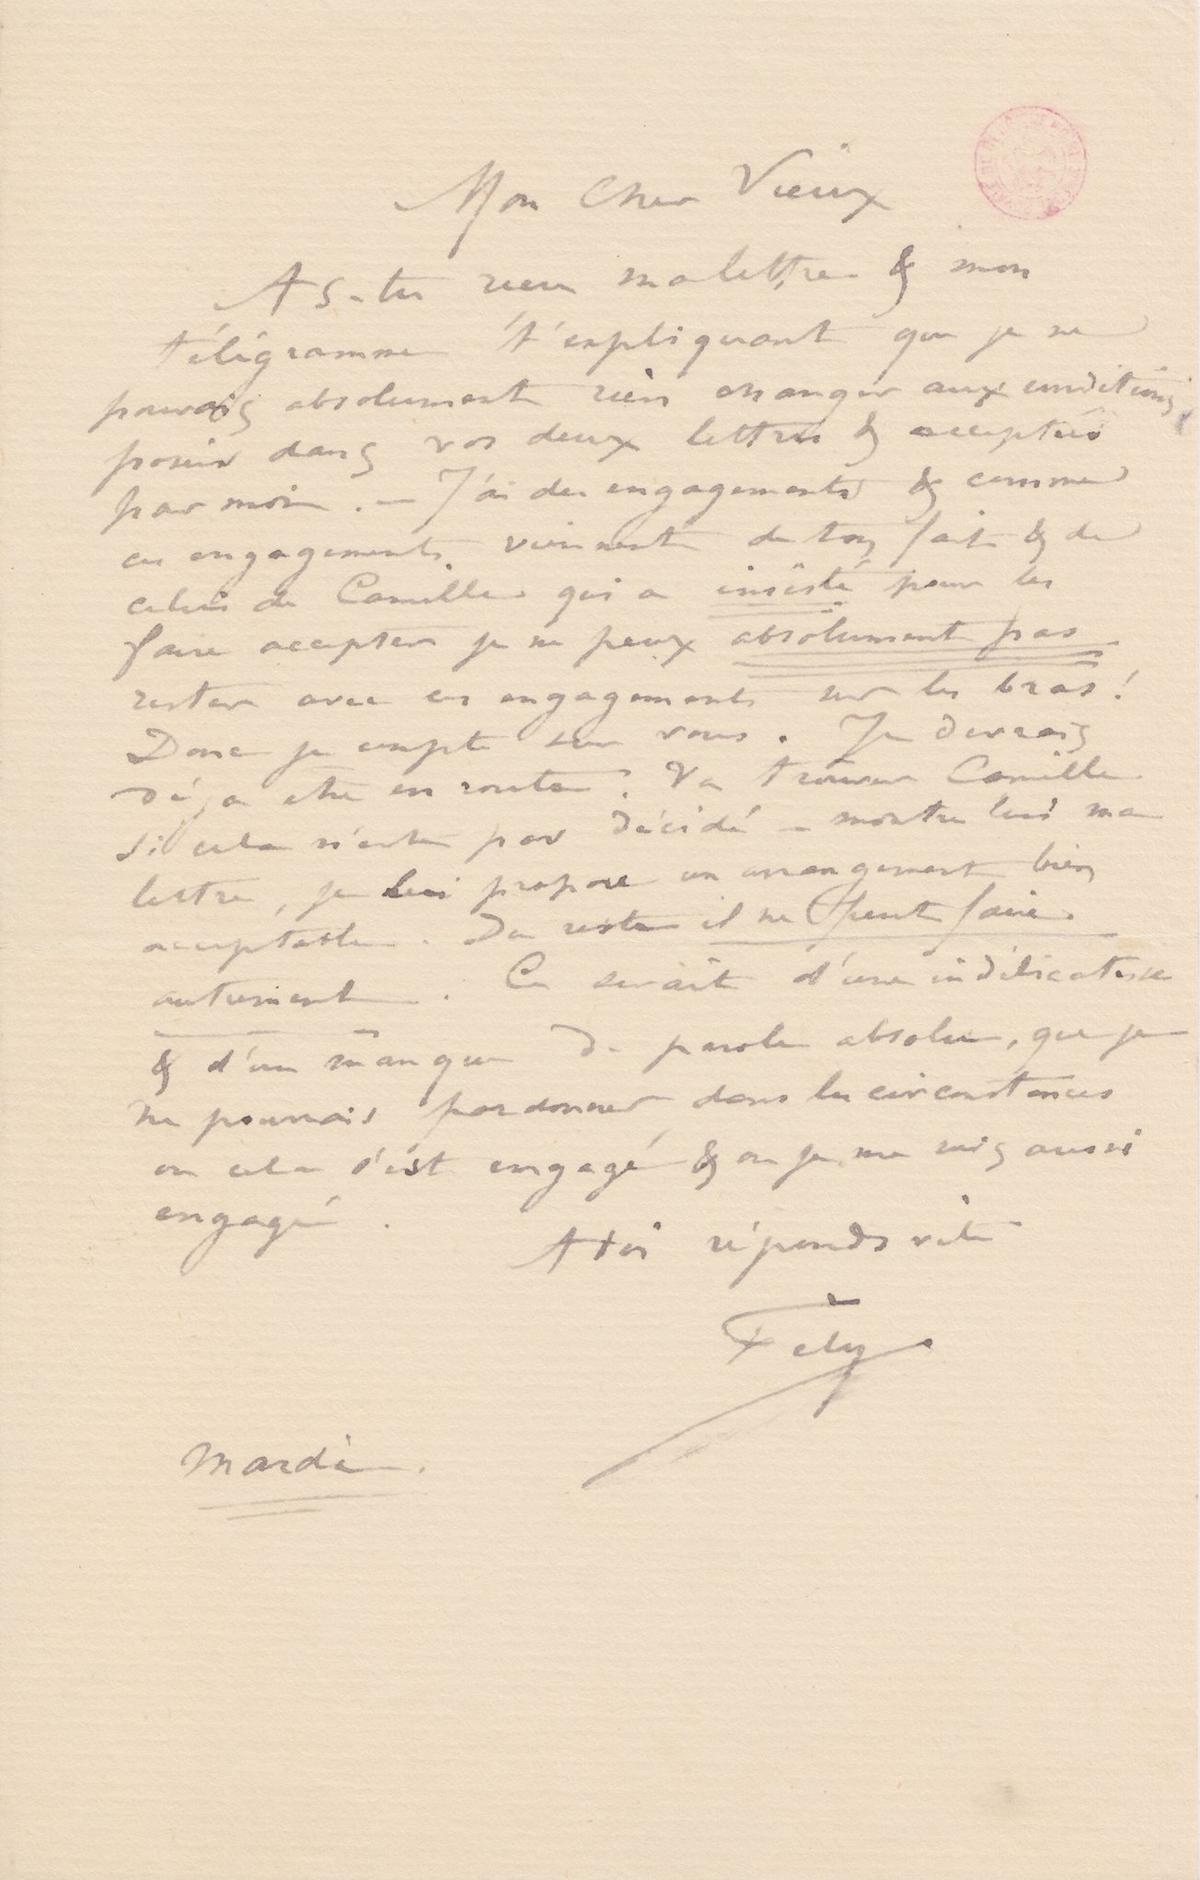 Mon Cher Vieux
As-tu reçu ma lettre & mon
télégramme t'expliquant que je ne
pouvais absolument rien changer aux conditions
posées dans vos deux lettres & acceptées
par moi. — J'ai des engagements & comme
ces engagements viennent de ton fait & de
celui de Camille qui a insisté pour les
faire accepter je ne peux absolument pas
rester avec ces engagements sur les bras!
Donc je compte sur vous. Je devrais
déja etre en route! Va trouver Camille
si cela n'est pas décidé – montre lui ma
lettre, je lui propose un arrangement bien
acceptable. Du reste il ne peut faire
autrement. Ce serait d'une indélicatesse
& d'un manque de parole absolue, que je
ne pourrais pardonner dans les circonstances
ou cela s'est engagé & ou je me suis aussi
engagé.
A toi réponds vite
Fély
Mardi.